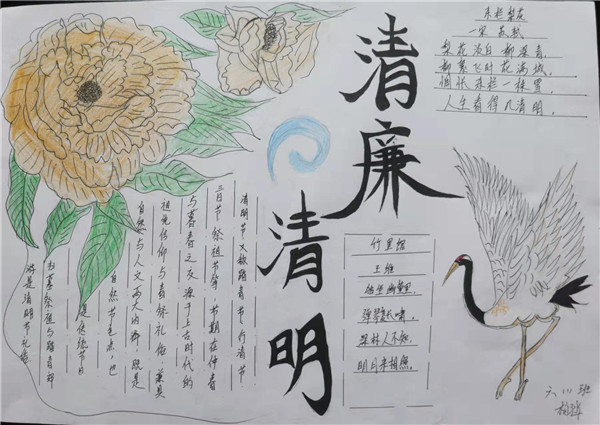 清廉
清明
东栏梨花
一宋 苏轼
梨花淡白柳深青,
柳絮飞时花满城,
惆怅东栏一株雪,
人生看得几清明。
竹里馆
王维
独坐幽篁里,
弹琴复长啸。
深林人不知,
明月来相照。
清明节又称踏青节、行清节、
三月节、祭祖节等,节期在仲春
与暮春之交。源于上古时代的
祖先信仰与春祭礼俗,兼具
自然与人文两大内涵,既是
自然节气点,也
是传统节日
扫墓祭祖与踏青郊
游是清明节礼俗
六(1)班